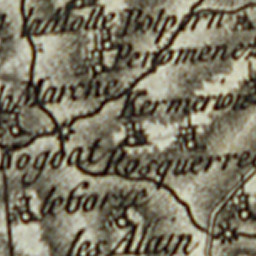 la Motte Bolpern
Penomene
la Marche
Kermerion
Rosquerre
leborze
les Alain